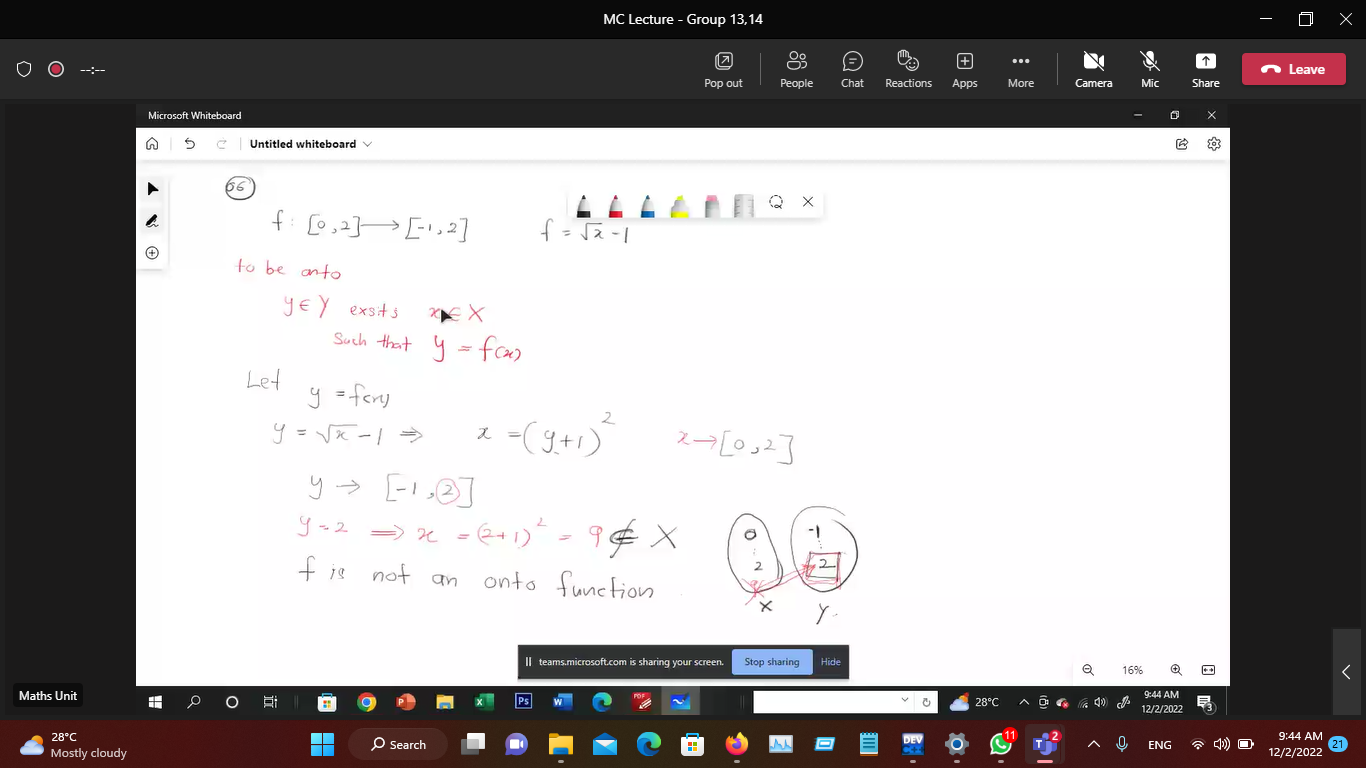 MC Lecture - Group 13,14
--:--
Pop out People Chat Reactions Apps More Camera Mic Share Leave
Microsoft Whiteboard
Untitled whiteboard
06
f : [0,2] ⟶ [-1,2] f = √x -1
to be onto
y ∈ Y exsits x ∈ X
Such that y = f(x)
Let y = f(x)
y = √x -1 ⇒ x = (y+1)² x → [0,2]
y → [-1,2]
y = 2 ⟹ x = (2+1)² = 9 ∉ X
f is not an onto function
0 -1
: :
2 2
9
X Y
teams.microsoft.com is sharing your screen. Stop sharing Hide
16%
Maths Unit
28°C
9:44 AM
12/2/2022
3
28°C
Mostly cloudy
Search
11
2
ENG
9:44 AM
12/2/2022
21